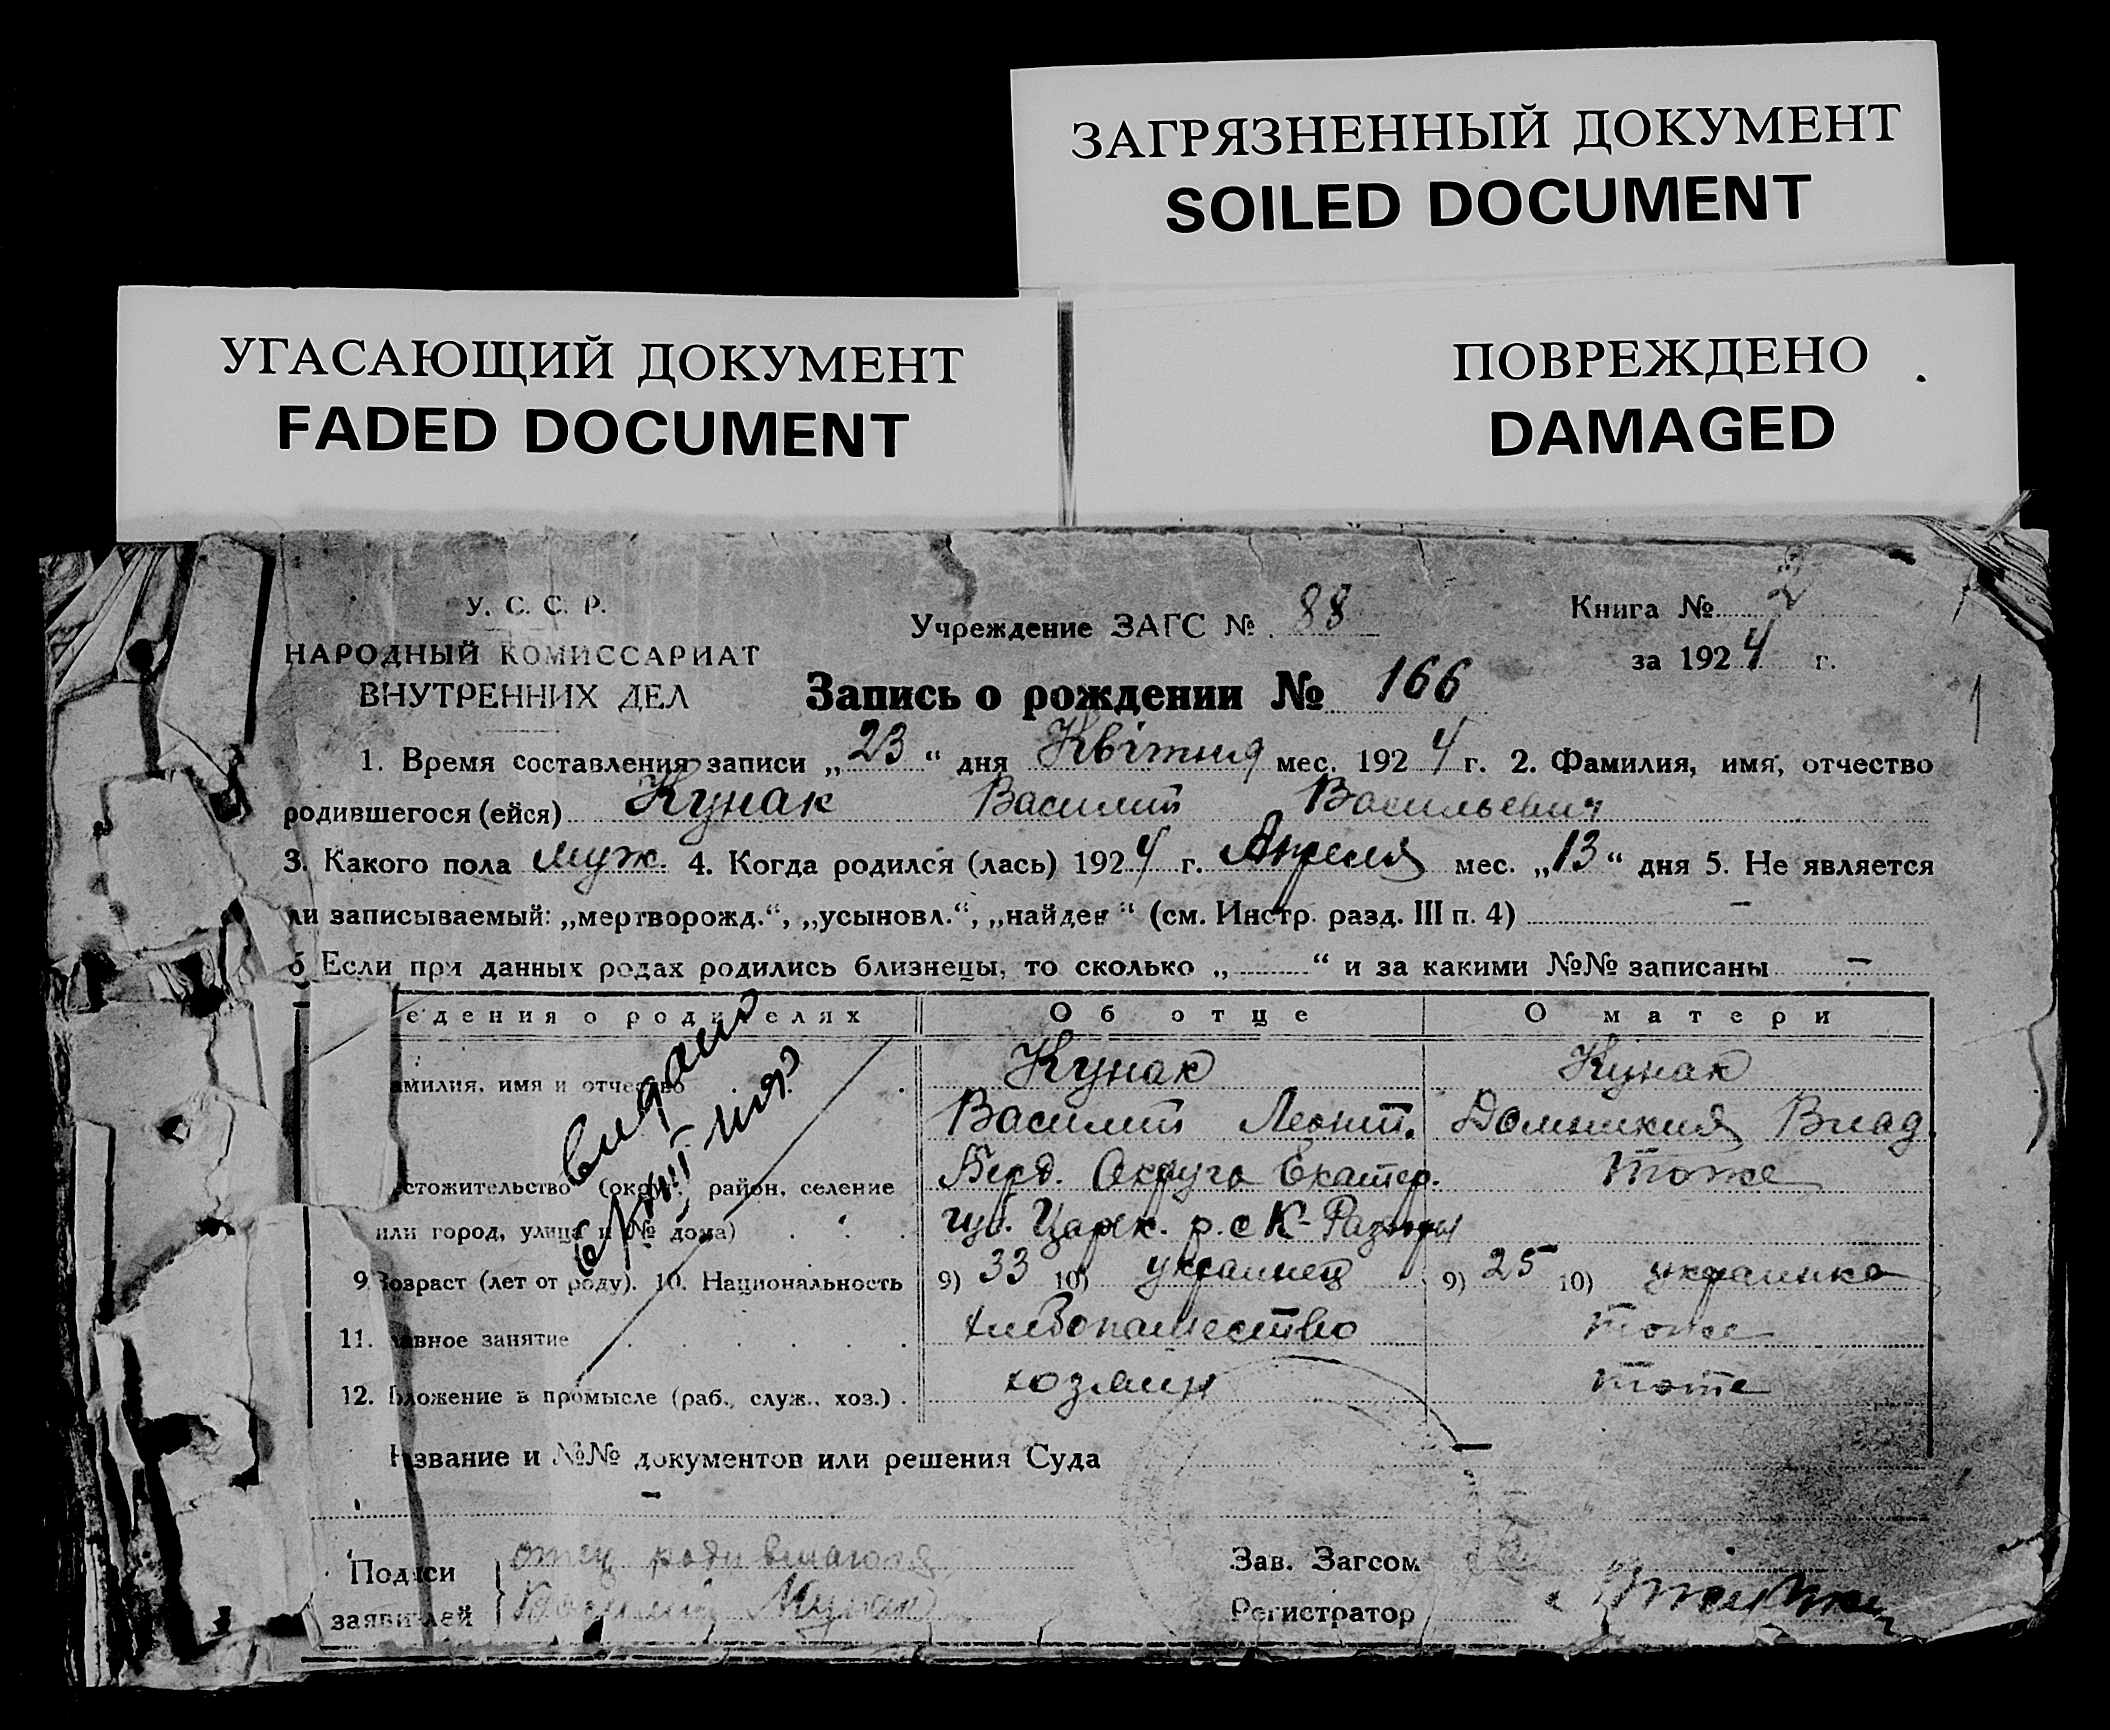 ЗАГРЯЗНЕННЫЙ ДОКУМЕНТ
SOILED DOCUMENT
УГАСАЮЩИЙ ДОКУМЕНТ
FADED DOCUMENT
ПОВРЕЖДЕНО
DAMAGED
У. С. С. Р.
НАРОДНЫЙ КОМИССАРИАТ
ВНУТРЕННИХ ДЕЛ
Учреждение ЗАГС № 88
Книга № 2
за 1924 г.
Запись о рождении № 166
1. Время составления записи „23“ дня Квітня мес. 1924 г. 2. Фамилия, имя, отчество
родившегося (ейся) Кунак Василий Васильевич
3. Какого пола муж. 4. Когда родился (лась) 1924 г. Апреля мес. „13“ дня 5. Не является
ли записываемый: „мертворожд.“, „усыновл.“, „найден“ (см. Инстр. разд. III п. 4) –
6 Если при данных родах родились близнецы, то сколько „ “ и за какими №№ записаны –
едения о родителях Об отце О матери
амилия, имя и отчество Кунак Кунак
Василий Леонт. Домникия Влад.
стожительство (округ, район, селение Берд. Округа Екатер. тоже
или город, улица и № дома) губ. Царек. р. с К-Разоры
9 Возраст (лет от роду). 10. Национальность 9) 33 10) украинец 9) 25 10) украинка
11. авное занятие хлебопашество тоже
12. ложение в промысле (раб., служ., хоз.) хозяин тоже
видано
Название и №№ документов или решения Суда –
–
Подписи отец родившагося
заявителей Василий Кунак
Зав. Загсом
Регистратор